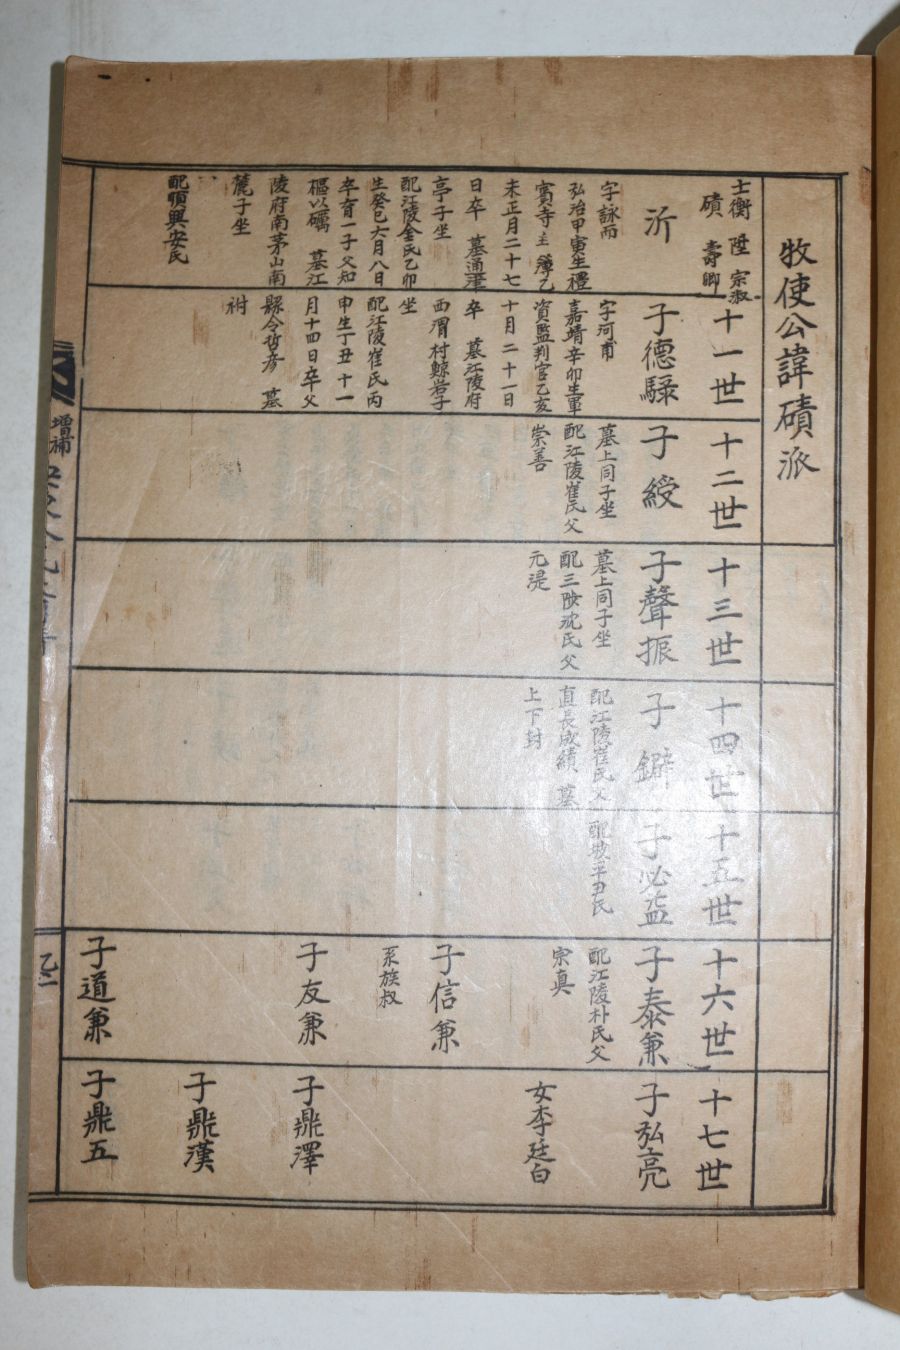 牧使公諱磧派
士衡 陞 宗叔
磧 壽卿
沂
字詠而
弘治甲寅生禮
賓寺主簿乙
未正月二十七
日卒 墓通津
亭子坐
配江陵金氏乙卯
生癸巳六月八日
卒育一子父知
樞以礪 墓江
陵府南茅山南
麓子坐
配順興安氏
十一世
子德騄
字河甫
嘉靖辛卯生軍
資監判官乙亥
十月二十一日
卒 墓江陵府
西渭村鯨岩子
坐
配江陵崔氏丙
申生丁丑十一
月十四日卒父
縣令哲彦 墓
祔
十二世
子綬
墓上同子坐
配江陵崔氏父
崇善
十三世
子聲振
墓上同子坐
配三陟沈氏父
元湜
十四世
子
配江陵崔氏父
直長成績 墓
上下封
十五世
子必益
十六世
子泰兼
配江陵朴氏父
宗真
子信兼
系族叔
子友兼
子道兼
十七世
子弘亮
女李廷白
子鼎澤
子鼎漢
子鼎五
增補